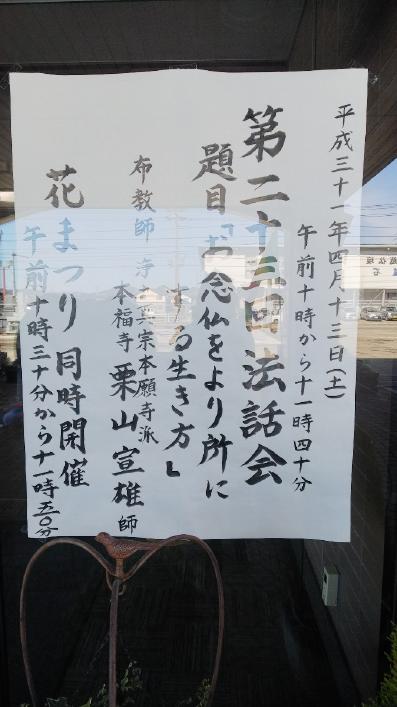 平成三十一年四月十三日(土)
午前十時から十一時四十分
第二十三回法話会
題目「お念仏をより所に
する生き方」
布教師 浄土真宗本願寺派
本福寺 栗山宣雄 師
花まつり 同時開催
午前十時三十分から十一時五〇分